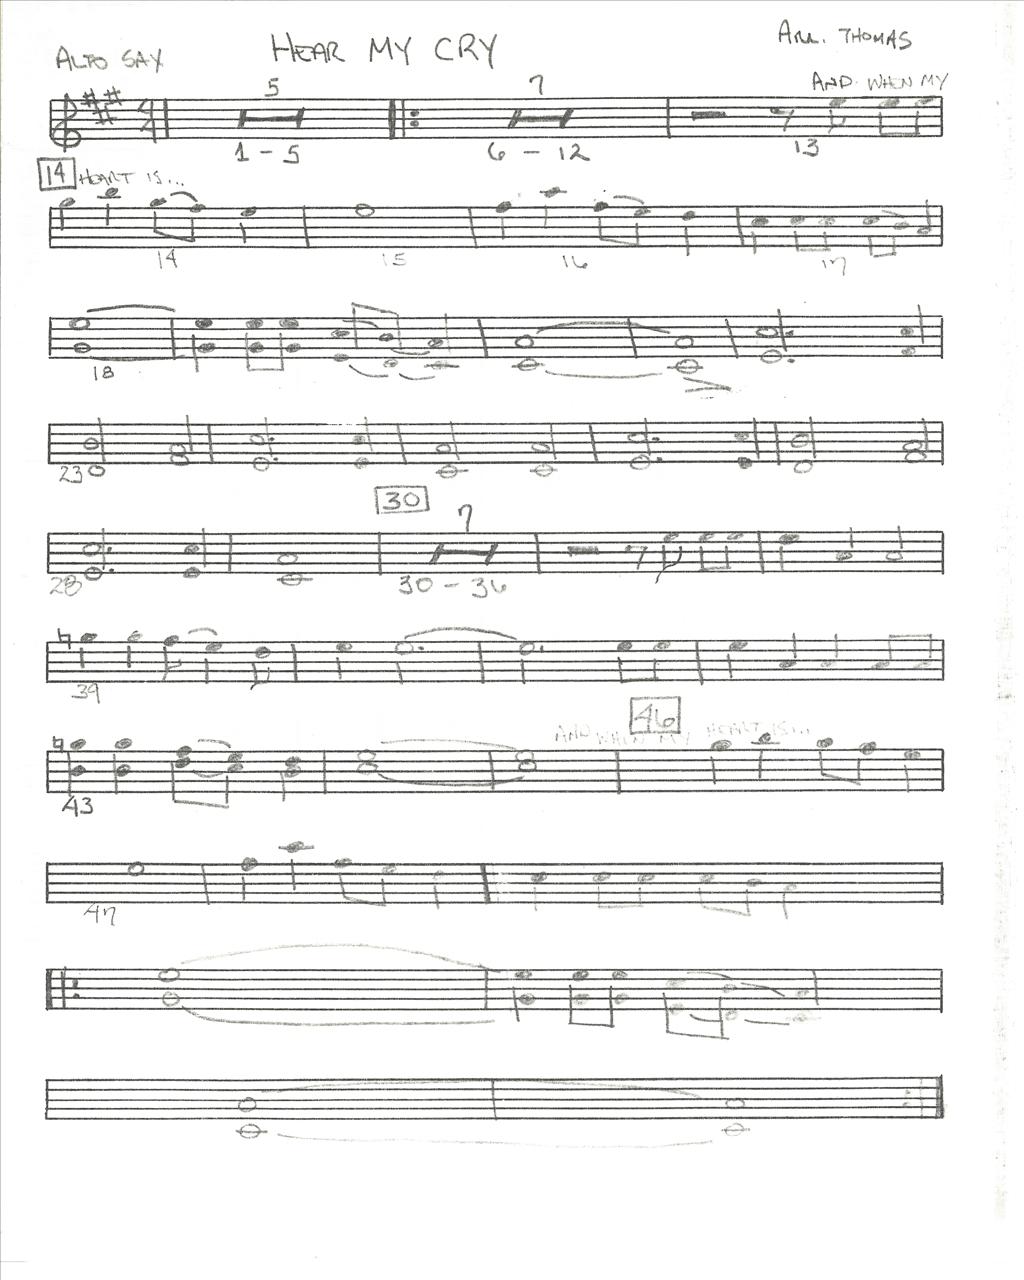 ALTO SAX HEAR MY CRY ARR. THOMAS
AND WHEN MY
5 7
1 - 5 6 - 12 13
14 HEART IS...
14 15 16 17
18
23
30
7
28 30 - 36
39
46
AND WHEN MY HEART IS...
43
47